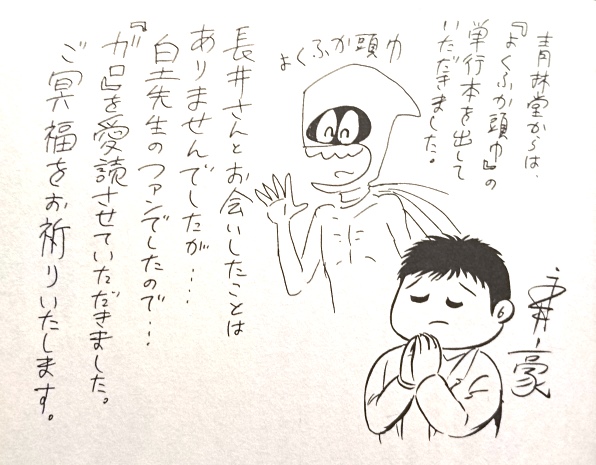 青林堂からは、
『よくふか頭巾』の
単行本を出して
いただきました。
よくふか頭巾
長井さんとお会いしたことは
ありませんでしたが…
白土先生のファンでしたので…
『ガロ』を愛読させていただきました。
ご冥福をお祈りいたします。
永井豪